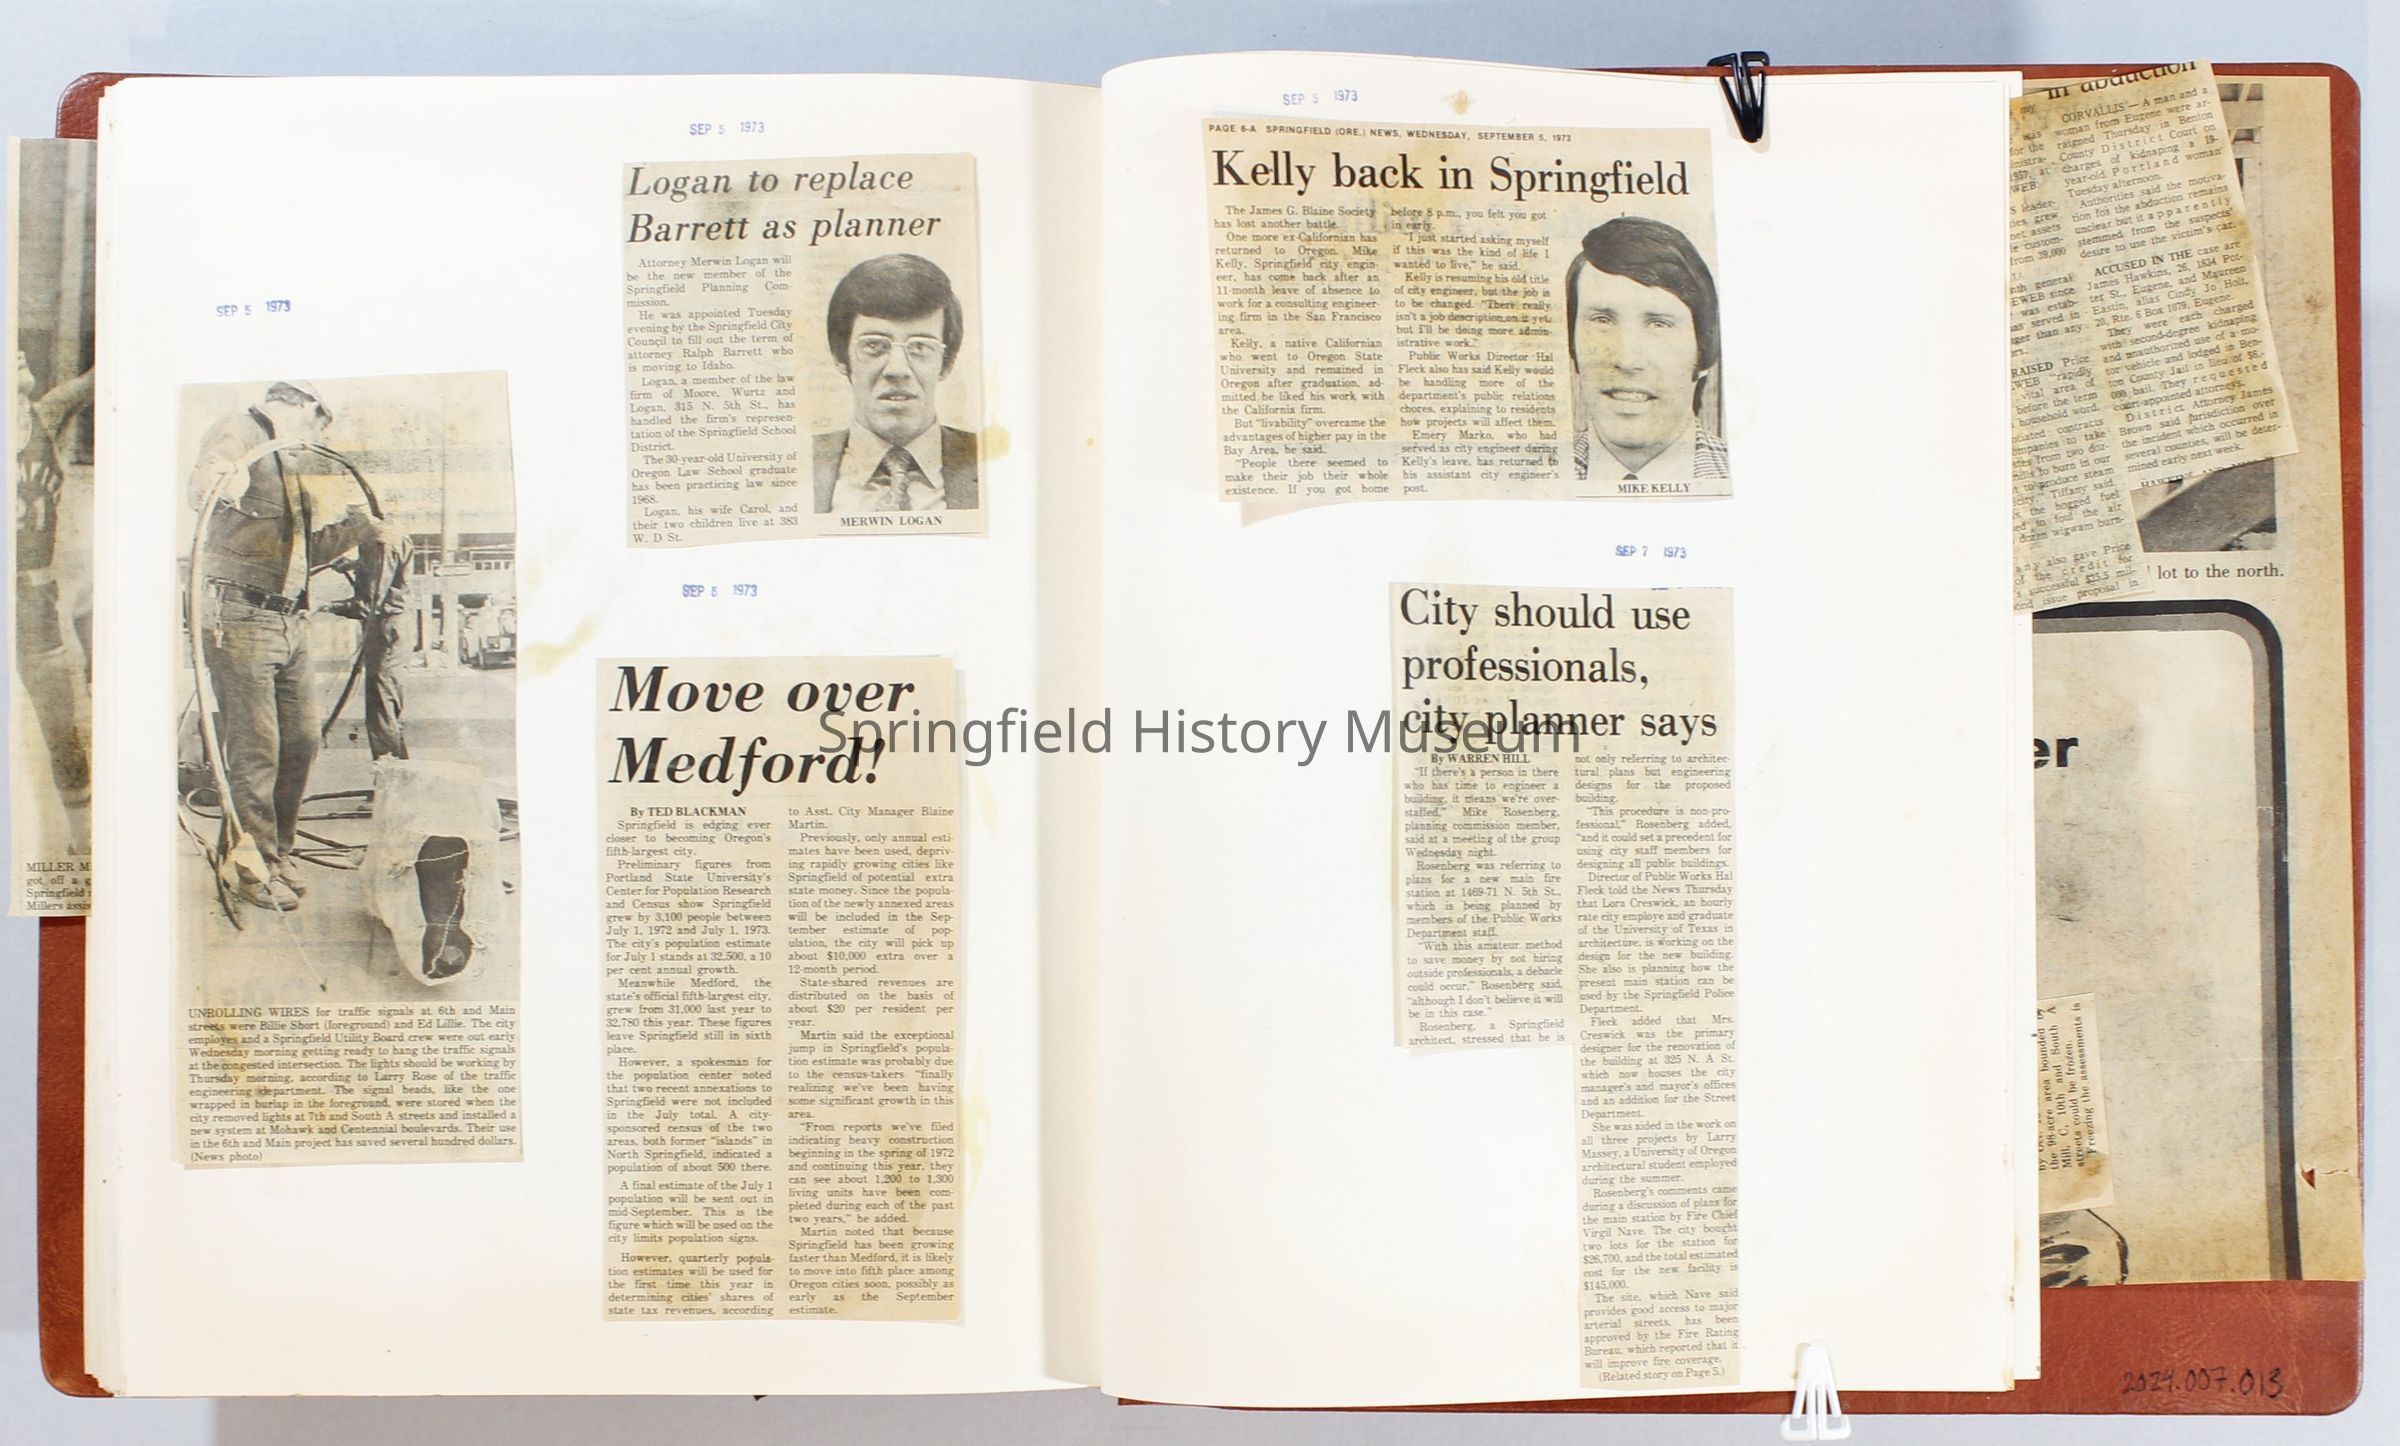 SEP 5 1973
UNROLLING WIRES for traffic signals at 6th and Main
streets were Billie Short (foreground) and Ed Lillie. The city
employes and a Springfield Utility Board crew were out early
Wednesday morning getting ready to hang the traffic signals
at the congested intersection. The lights should be working by
Thursday morning, according to Larry Rose of the traffic
engineering department. The signal heads, like the one
wrapped in burlap in the foreground, were stored when the
city removed lights at 7th and South A streets and installed a
new system at Mohawk and Centennial boulevards. Their use
in the 6th and Main project has saved several hundred dollars.
(News photo)
MILLER M
got off a g
Springfield
Millers assis
SEP 5 1973
Logan to replace
Barrett as planner
Attorney Merwin Logan will
be the new member of the
Springfield Planning Com-
mission.
He was appointed Tuesday
evening by the Springfield City
Council to fill out the term of
attorney Ralph Barrett who
is moving to Idaho.
Logan, a member of the law
firm of Moore, Wurtz and
Logan, 315 N. 5th St., has
handled the firm's represen-
tation of the Springfield School
District.
The 30-year-old University of
Oregon Law School graduate
has been practicing law since
1968.
Logan, his wife Carol, and
their two children live at 383
W. D St.
MERWIN LOGAN
SEP 5 1973
Move over
Medford!
By TED BLACKMAN
Springfield is edging ever
closer to becoming Oregon's
fifth-largest city.
Preliminary figures from
Portland State University's
Center for Population Research
and Census show Springfield
grew by 3,100 people between
July 1, 1972 and July 1, 1973.
The city's population estimate
for July 1 stands at 32,500, a 10
per cent annual growth.
Meanwhile Medford, the
state's official fifth-largest city,
grew from 31,000 last year to
32,780 this year. These figures
leave Springfield still in sixth
place.
However, a spokesman for
the population center noted
that two recent annexations to
Springfield were not included
in the July total. A city-
sponsored census of the two
areas, both former "islands" in
North Springfield, indicated a
population of about 500 there.
A final estimate of the July 1
population will be sent out in
mid-September. This is the
figure which will be used on the
city limits population signs.
However, quarterly popula-
tion estimates will be used for
the first time this year in
determining cities' shares of
state tax revenues, according
to Asst. City Manager Blaine
Martin.
Previously, only annual esti-
mates have been used, depriv-
ing rapidly growing cities like
Springfield of potential extra
state money. Since the popula-
tion of the newly annexed areas
will be included in the Sep-
tember estimate of pop-
ulation, the city will pick up
about $10,000 extra over a
12-month period.
State-shared revenues are
distributed on the basis of
about $20 per resident per
year.
Martin said the exceptional
jump in Springfield's popula-
tion estimate was probably due
to the census-takers "finally
realizing we've been having
some significant growth in this
area.
"From reports we've filed
indicating heavy construction
beginning in the spring of 1972
and continuing this year, they
can see about 1,200 to 1,300
living units have been com-
pleted during each of the past
two years," he added.
Martin noted that because
Springfield has been growing
faster than Medford, it is likely
to move into fifth place among
Oregon cities soon, possibly as
early as the September
estimate.
Springfield History Museum
SEP 5 1973
PAGE 6-A SPRINGFIELD (ORE.) NEWS, WEDNESDAY, SEPTEMBER 5, 1973
Kelly back in Springfield
The James G. Blaine Society
has lost another battle.
One more ex-Californian has
returned to Oregon. Mike
Kelly, Springfield city engin-
eer, has come back after an
11-month leave of absence to
work for a consulting engineer-
ing firm in the San Francisco
area.
Kelly, a native Californian
who went to Oregon State
University and remained in
Oregon after graduation, ad-
mitted he liked his work with
the California firm.
But "livability" overcame the
advantages of higher pay in the
Bay Area, he said.
"People there seemed to
make their job their whole
existence. If you got home
before 8 p.m., you felt you got
in early.
"I just started asking myself
if this was the kind of life I
wanted to live," he said.
Kelly is resuming his old title
of city engineer, but the job is
to be changed. "There really
isn't a job description on it yet,
but I'll be doing more admin-
istrative work."
Public Works Director Hal
Fleck also has said Kelly would
be handling more of the
department's public relations
chores, explaining to residents
how projects will affect them.
Emery Marko, who had
served as city engineer during
Kelly's leave, has returned to
his assistant city engineer's
post.
MIKE KELLY
SEP 7 1973
City should use
professionals,
city planner says
By WARREN HILL
"If there's a person in there
who has time to engineer a
building, it means we're over-
staffed," Mike Rosenberg,
planning commission member,
said at a meeting of the group
Wednesday night.
Rosenberg was referring to
plans for a new main fire
station at 1469-71 N. 5th St.,
which is being planned by
members of the Public Works
Department staff.
"With this amateur method
to save money by not hiring
outside professionals, a debacle
could occur," Rosenberg said,
"although I don't believe it will
be in this case."
Rosenberg, a Springfield
architect, stressed that he is
not only referring to architec-
tural plans but engineering
designs for the proposed
building.
"This procedure is non-pro-
fessional," Rosenberg added,
"and it could set a precedent for
using city staff members for
designing all public buildings.
Director of Public Works Hal
Fleck told the News Thursday
that Lora Creswick, an hourly
rate city employe and graduate
of the University of Texas in
architecture, is working on the
design for the new building.
She also is planning how the
present main station can be
used by the Springfield Police
Department.
Fleck added that Mrs.
Creswick was the primary
designer for the renovation of
the building at 325 N. A St.
which now houses the city
manager's and mayor's offices
and an addition for the Street
Department.
She was aided in the work on
all three projects by Larry
Massey, a University of Oregon
architectural student employed
during the summer.
Rosenberg's comments came
during a discussion of plans for
the main station by Fire Chief
Virgil Nave. The city bought
two lots for the station for
$26,700, and the total estimated
cost for the new facility is
$145,000.
The site, which Nave said
provides good access to major
arterial streets, has been
approved by the Fire Rating
Bureau, which reported that it
will improve fire coverage.
(Related story on Page 5.)
in abduction
CORVALLIS — A man and a
woman from Eugene were ar-
raigned Thursday in Benton
County District Court on
charges of kidnaping a 19-
year-old Portland woman
Tuesday afternoon.
Authorities said the motiva-
tion for the abduction remains
unclear but it apparently
stemmed from the suspects'
desire to use the victim's car.
ACCUSED IN THE case are
James Hawkins, 26, 1834 Pot-
ter St., Eugene, and Maureen
Eastin, alias Cindy Jo Holt,
20, Rte. 6 Box 1079, Eugene.
They were each charged
with second-degree kidnaping
and unauthorized use of a mo-
tor vehicle and lodged in Ben-
ton County Jail in lieu of $6,-
000 bail. They requested
court-appointed attorneys.
District Attorney James
Brown said jurisdiction over
the incident which occurred in
several counties, will be deter-
mined early next week.
lot to the north.
er
the 98-acre area bounded by
Mill, C, 10th and South A
streets could be frozen.
Freezing the assessments is
2024.007.013